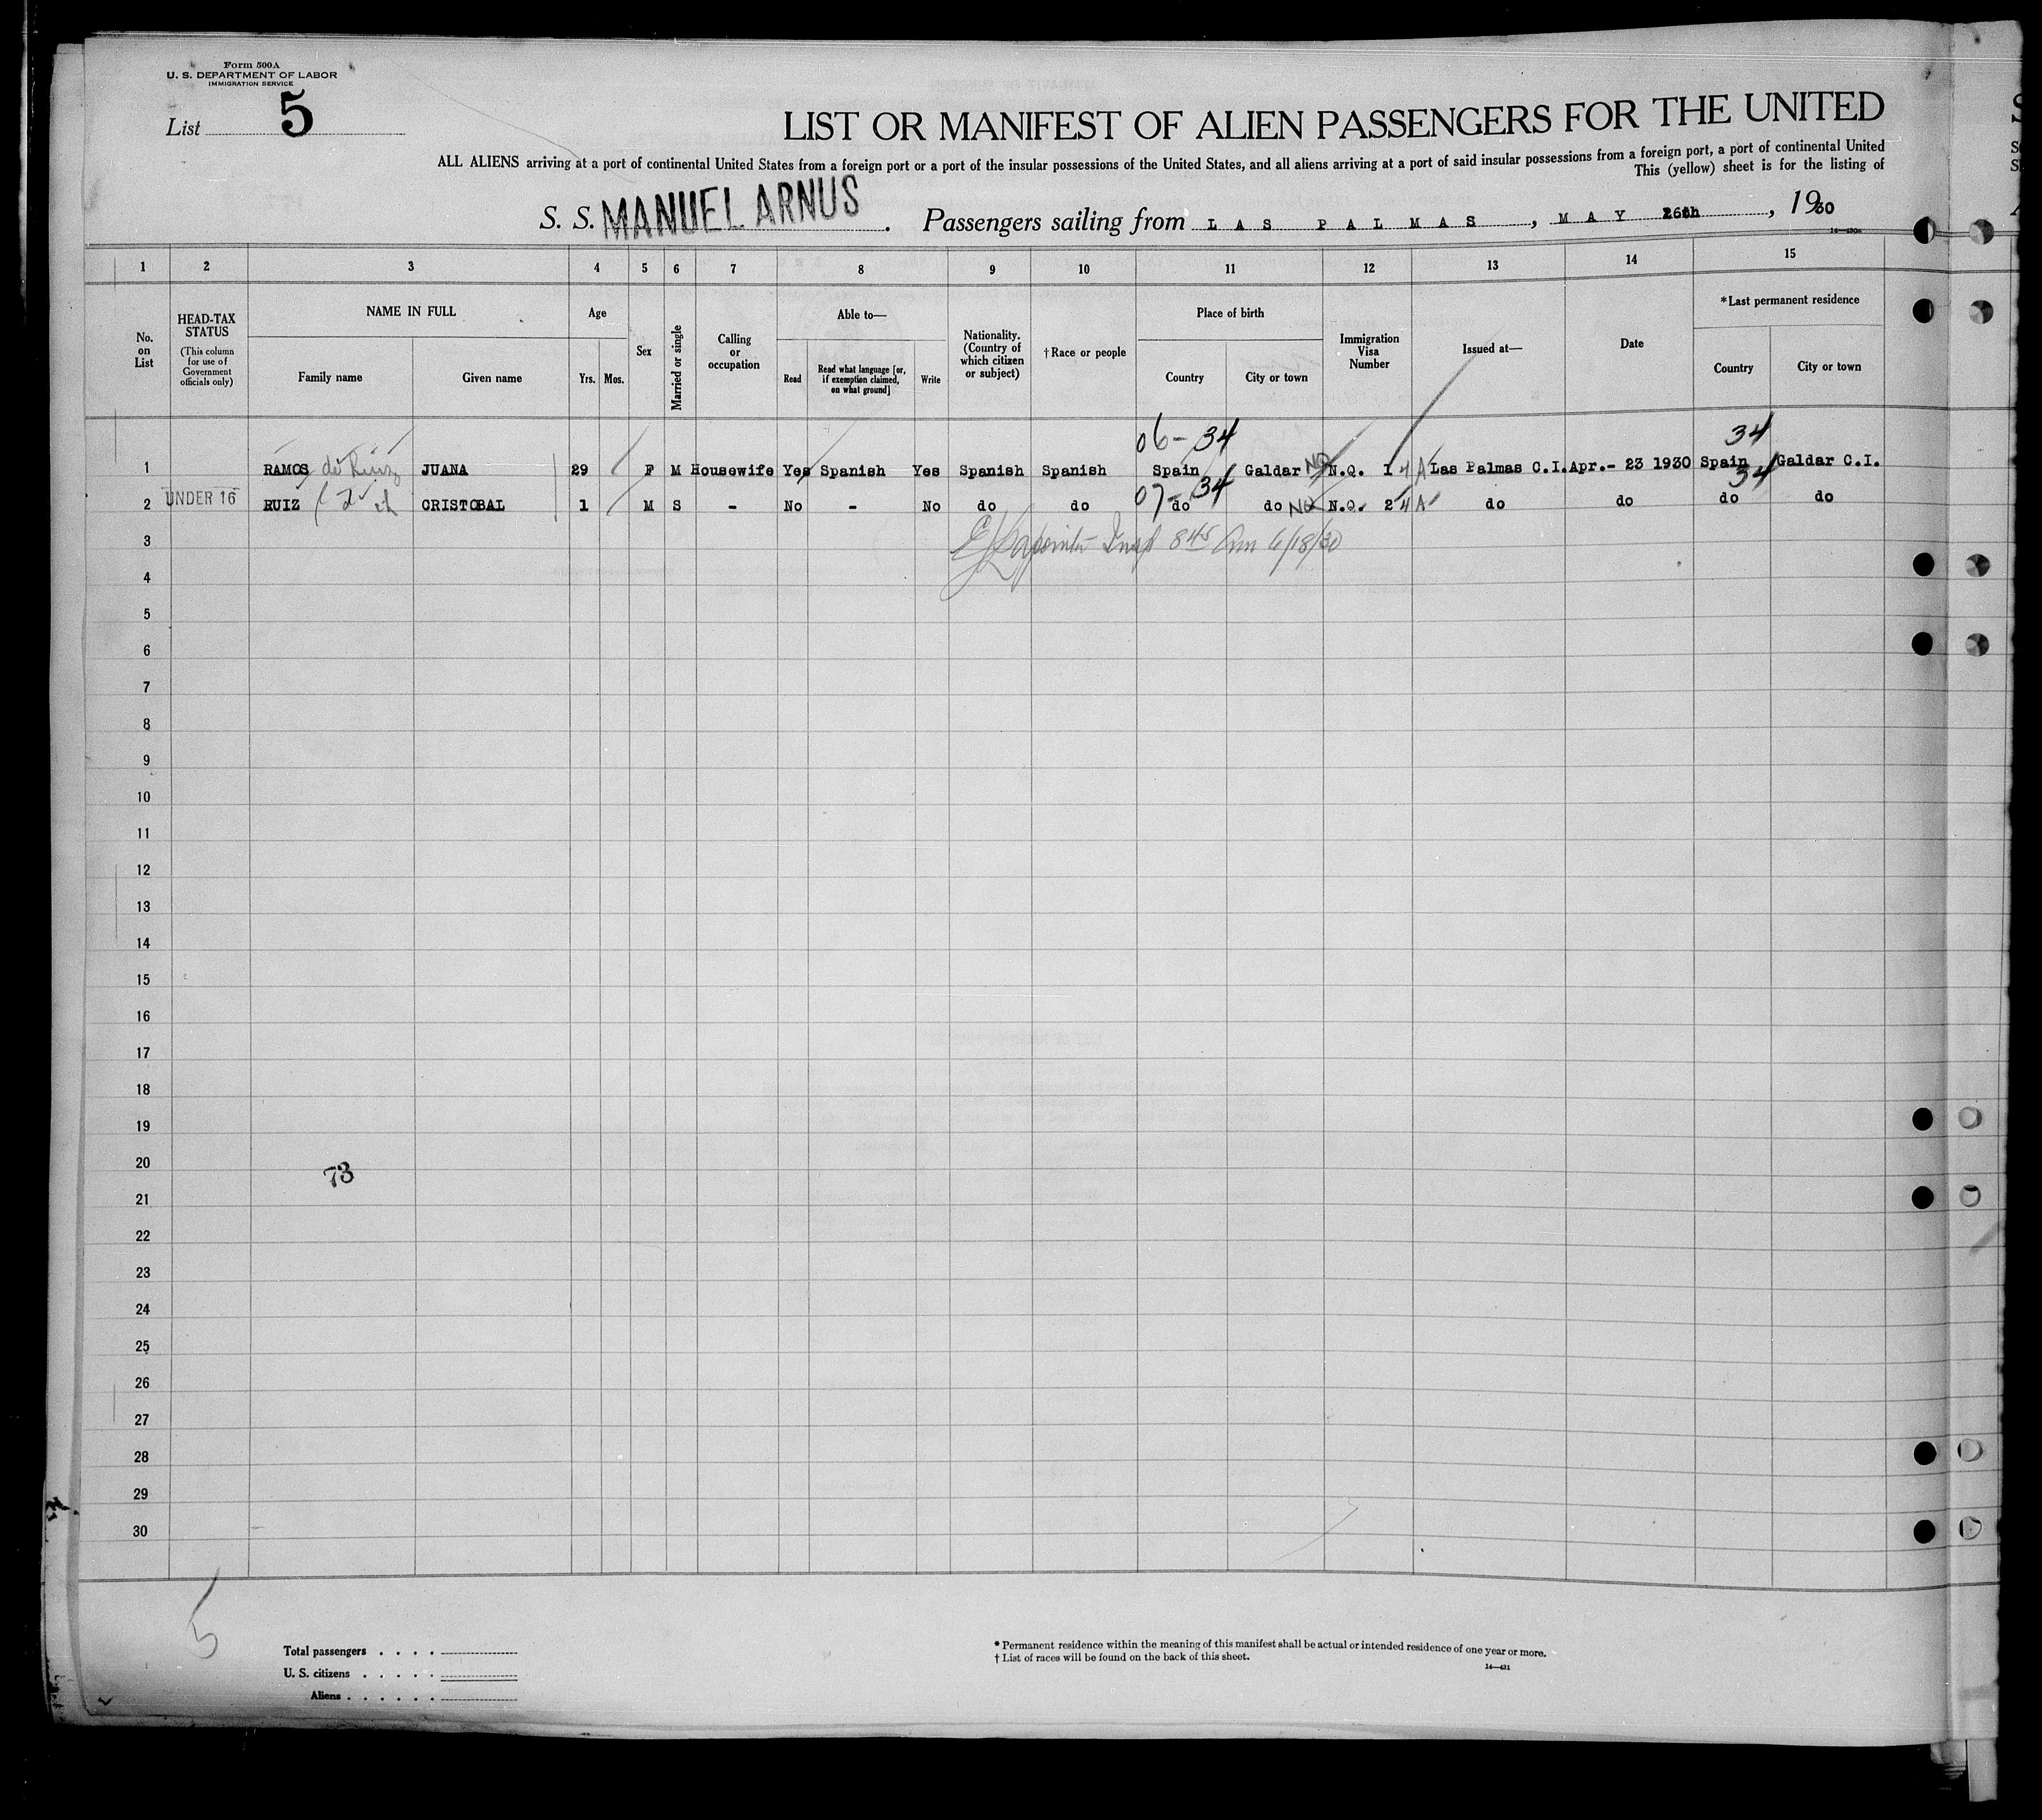 Form 500A
U. S. DEPARTMENT OF LABOR
IMMIGRATION SERVICE
List 5
LIST OR MANIFEST OF ALIEN PASSENGERS FOR THE UNITED
ALL ALIENS arriving at a port of continental United States from a foreign port or a port of the insular possessions of the United States, and all aliens arriving at a port of said insular possessions from a foreign port, a port of continental United
This (yellow) sheet is for the listing of
S. S. MANUEL ARNUS. Passengers sailing from LAS PALMAS, MAY 26th, 1930
1 2 3 4 5 6 7 8 9 10 11 12 13 14 15
No. on List
HEAD-TAX STATUS
(This column for use of Government officials only)
NAME IN FULL
Family name
Given name
Age
Yrs.
Mos.
Sex
Married or single
Calling or occupation
Able to—
Read
Read what language [or, if exemption claimed, on what ground]
Write
Nationality. (Country of which citizen or subject)
†Race or people
Place of birth
Country
City or town
Immigration Visa Number
Issued at—
Date
*Last permanent residence
Country
City or town
06-34 34
1 RAMOS de Ruiz JUANA 29 F M Housewife Yes Spanish Yes Spanish Spanish Spain Galdar NQ N.Q. 1 4 A Las Palmas C.I. Apr.- 23 1930 Spain Galdar C.I.
07-34 34
2 UNDER 16 RUIZ CRISTOBAL 1 M S - No - No do do do do NQ N.Q. 2 4 A do do do do
3 Insp 8 45 Am 6/18/30
4
5
6
7
8
9
10
11
12
13
14
15
16
17
18
19
20
73
21
22
23
24
25
26
27
28
29
30
5
Total passengers . . . .
U. S. citizens . . . . .
Aliens . . . . . .
* Permanent residence within the meaning of this manifest shall be actual or intended residence of one year or more.
† List of races will be found on the back of this sheet.
14—431